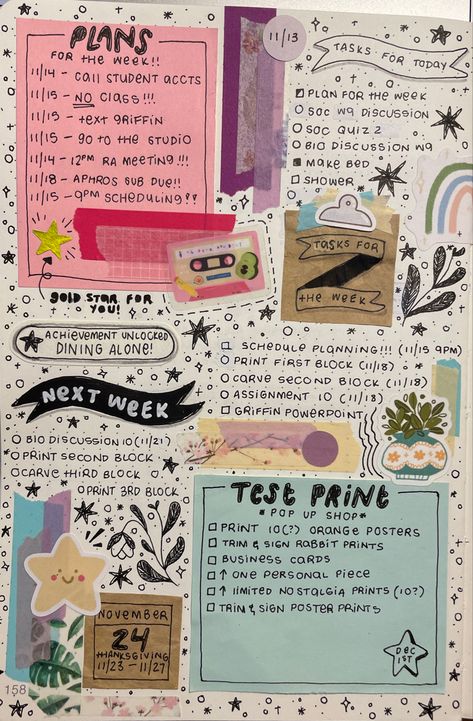 PLANS
FOR THE WEEK!!
11/14 - CALL STUDENT ACCTS
11/15 - NO CLASS!!!
11/15 - +EXT GRIFFIN
11/15 - GO TO THE STUDIO
11/14 - 12PM RA MEETING!!!
11/18 - APHROS SUB DUE!!
11/15 - 9PM SCHEDULING??
GOLD STAR FOR
YOU!
ACHIEVEMENT UNLOCKED
DINING ALONE!
NEXT WEEK
BIO DISCUSSION 10 (11/21)
PRINT SECOND BLOCK
CARVE THIRD BLOCK
PRINT 3RD BLOCK
NOVEMBER
24
THANKSGIVING
11/23 - 11/27
158
11/13
TASKS FOR TODAY
PLAN FOR THE WEEK
SOC W9 DISCUSSION
SOC QUIZ 2
BIO DISCUSSION W9
MAKE BED
SHOWER
TASKS FOR
THE WEEK
SCHEDULE PLANNING!!! (11/15 9PM)
PRINT FIRST BLOCK (11/18)
CARVE SECOND BLOCK (11/18)
ASSIGNMENT 10 (11/18)
GRIFFIN POWERPOINT
TEST PRINT
*POP UP SHOP*
PRINT 10(?) ORANGE POSTERS
TRIM & SIGN RABBIT PRINTS
BUSINESS CARDS
↑ ONE PERSONAL PIECE
↑ LIMITED NOSTALGIA PRINTS (10?)
TRIM & SIGN POSTER PRINTS
DEC
1ST